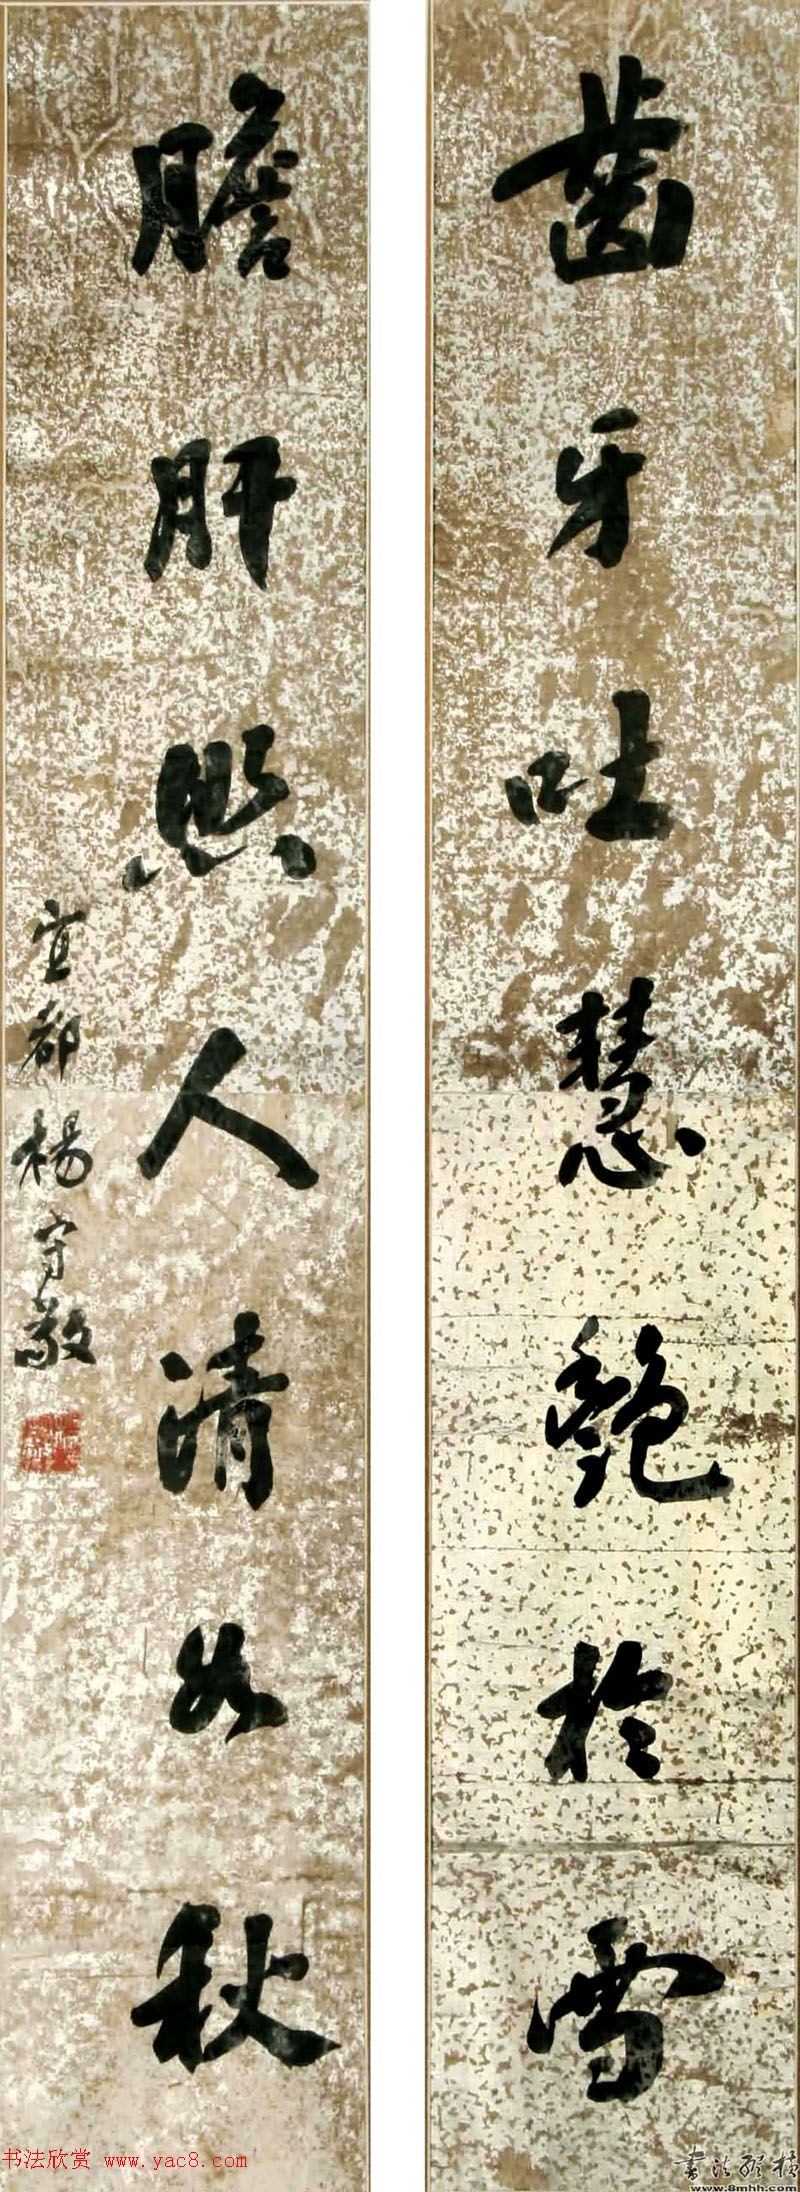 齒牙吐慧艷於雪
膽肝照人清如秋
宜都楊守敬
书法欣赏 www.yac8.com
書法縱橫
www.8mhh.com